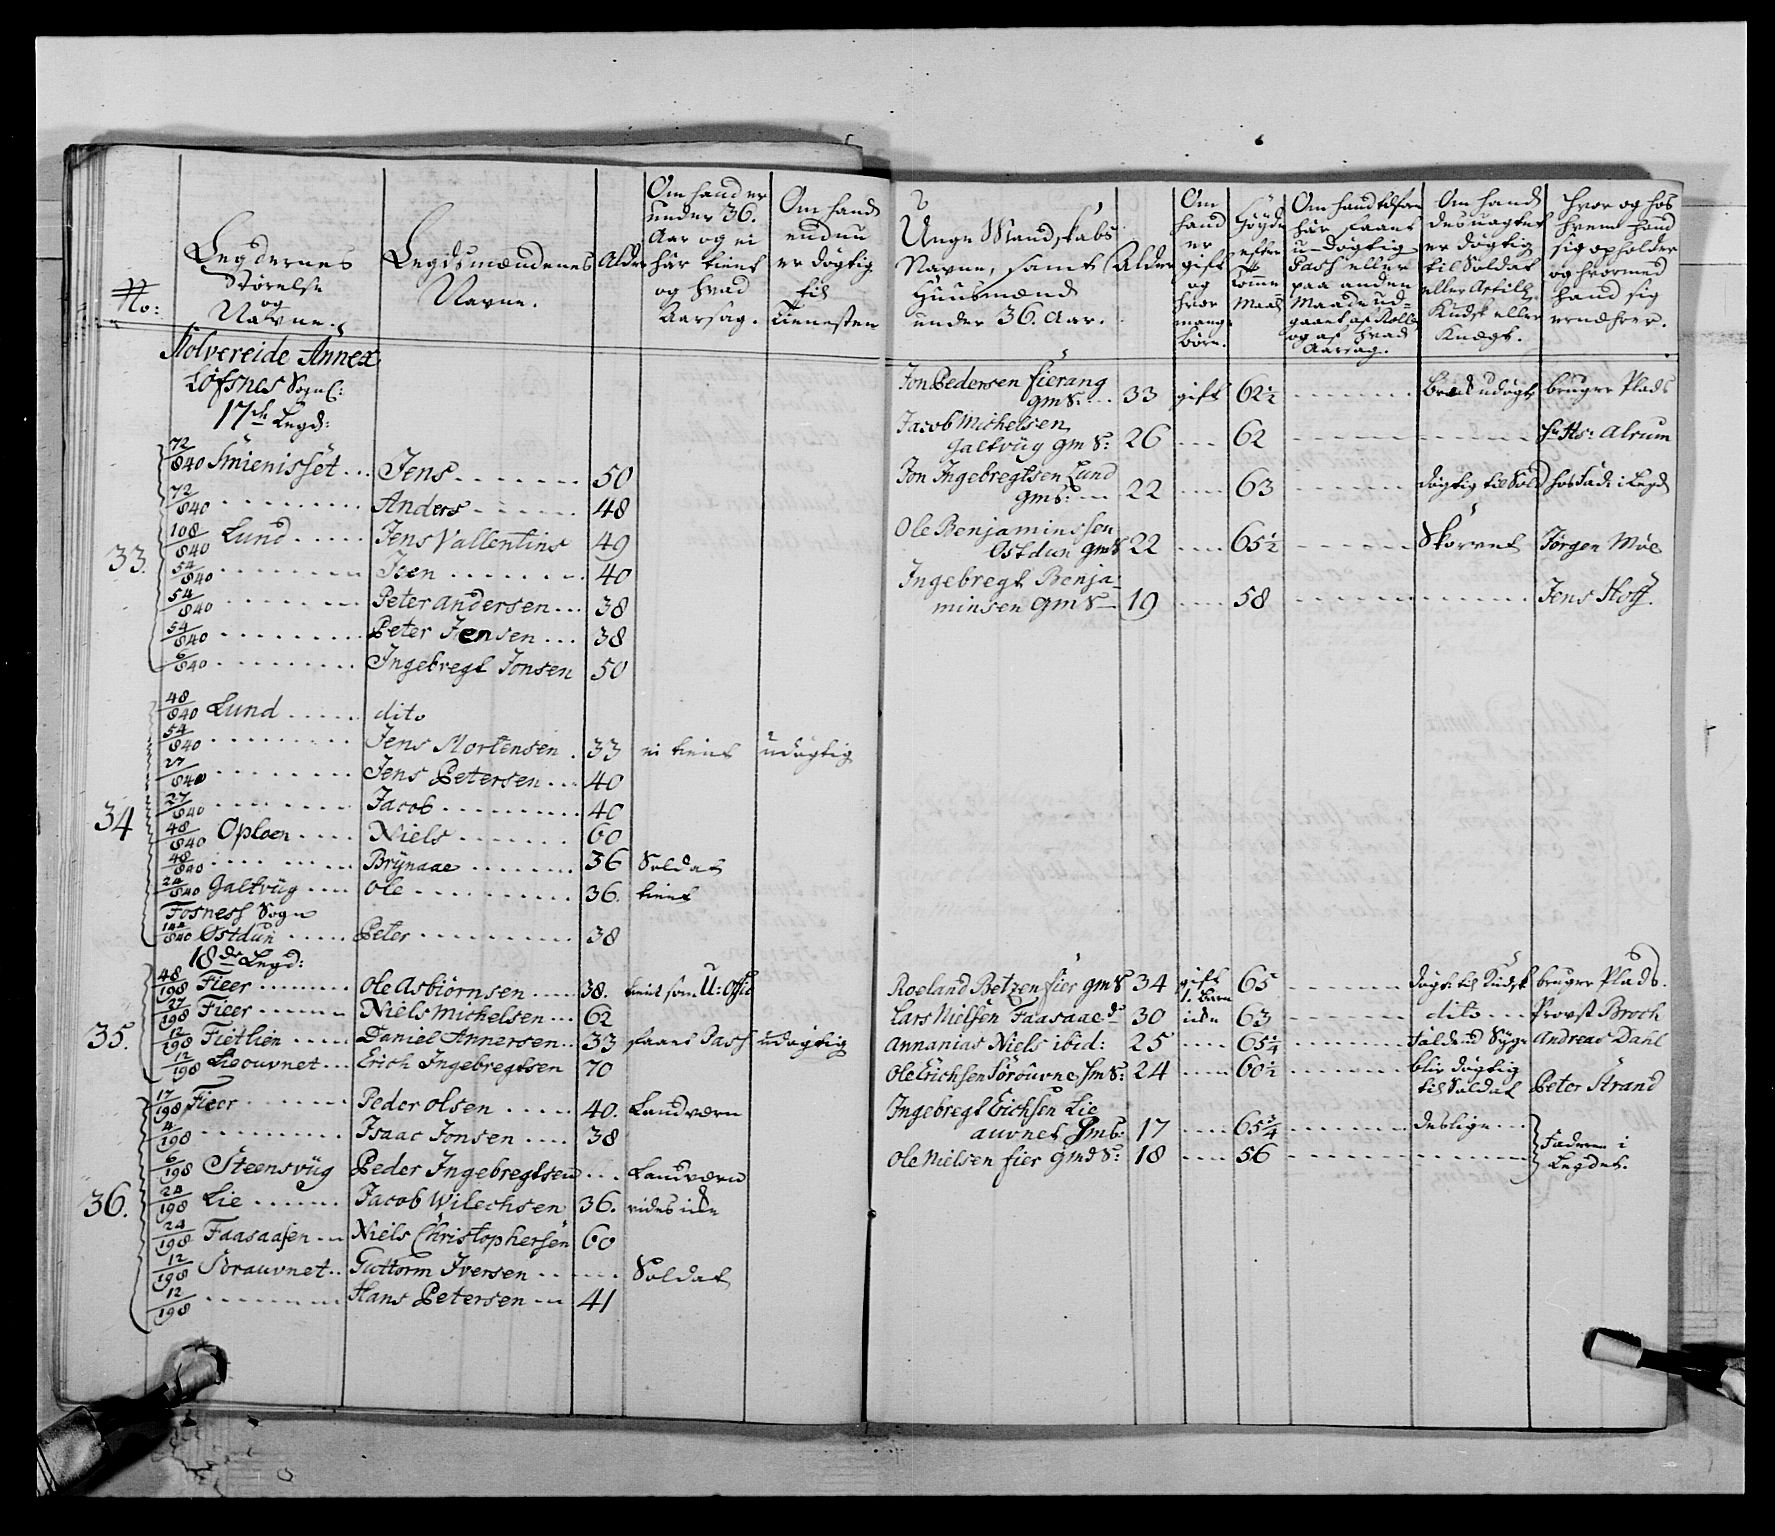 No:
Legdernes
Størelse
og
Navne.
Legdsmændenes
Navne.
Alder
Om hand er
under 36.
Aar og ei
hår tient
og hvad
Aarsag.
Om hand
endnu
er døgtig
til
Tienesten
Unge Mandskabs
Navne, samt
Huusmænd
under 36. Aar.
Alder
Om
hand
er
gift
og
hvor
mange
børn.
Høyde
efter
Tomme
Maal
Om hand tilforn
hår faaet
u-døgtig
Pass eller
paa anden
Maade ud-
gaaet af Rolle
og af hvad
Aarsag.
Om hand
desuagtet
er døgtig
til Soldat
eller Artill:
Kudsk eller
Knægt.
Hvor og hos
hvem hand
sig opholder
og hvormed
hand sig
ernæhrer.
Kolvereide Annex
Løfsnes Sogn:
17de Legd:
33.
72/840 Smienisset ... Jens ........ 50
72/840 ........ Anders ...... 48
108/840 Lund ..... Jens Vallentins 49
54/840 ........ Isen ........ 40
54/840 ........ Peter Andersen ... 38
54/840 ........ Peter Jensen .... 38
6/840 ........ Ingebregt Jonsen 50
34
48/840 Lund ..... dito
54/840 ........ Jens Mortensen . 33 ei tient udøgtig
27/840 ........ Jens Petersen ... 40
27/840 ........ Jacob ......... 40
48/840 Oploen .... Niels ....... 60
48/840 ........ Brynaae ....... 36 Soldat
24/840 Galtvüg .... Ole ......... 36. tient
Fosness Sogn
144/840 Østdun ..... Peter ......... 38
18de Legd:
35.
48/198 Fieer ....... Ole Asbiørnsen .... 38. tient som U: Offic
27/198 Fieer ...... Niels Michelsen ... 62
12/198 Fietlien ..... Daniel Annersen .. 33 faaet Pass udøgtig
12/198 Lieouvnet ... Erich Ingebregtsen 70
36.
17/198 Fieer ....... Peder Olsen ..... 40. Landværn
4/198 ........ Isaac Jonsen .... 38
6/198 Steensvüg Peder Ingebregtsen ... Landværn
24/198 Lie ...... Jacob Wilechsen 36. vides icke
24/198 Faasaasen ... Niels Christophersen 60
12/198 Sørauvnet .. Guttorm Iversen ..... Soldat
12/198 ........ Hans Petersen ... 41
Jon Pedersen fierang
gmS: ... 33 gift 62½ ........ bræk udøgt: bruger Plads
Jacob Michelsen
Galtvüg gmS: 26 .... 62 ........ Hr: Alrum
Jon Ingebregtsen Lund
gmS: ... 22 .... 63 ....... døgtig til Sold hos Fad: i Legd
Ole Benjaminssen
Østdun gmS 22 .... 65½ ....... Skørvet Jørgen Moe
Ingebregt Benja
minsen gmS 19 .... 58 ........ Jens Hoff.
Roeland Betzen fier gmS 34 gift 1. barn 65 ....... døgt: til Kudsk bruger Plads.
Lars Nielsen Faasaae do 30 icke 63 ....... dito ... Provst Broch
Annanias Niels ibid: 25 .... 65¼ ....... faldend Syge Andreas Dahl
Ole Erichsen Sørouvne gmS: 24 .... 60½ ....... bliv døgtig
til Soldat Peter Strand
Ingebregt Erichsen Lie
auvnet gmS: 17 .... 65¾ ....... deslige ...
Ole Nielsen fier gmdS: 18 .... 56 ........
Faderen i
Legdet.